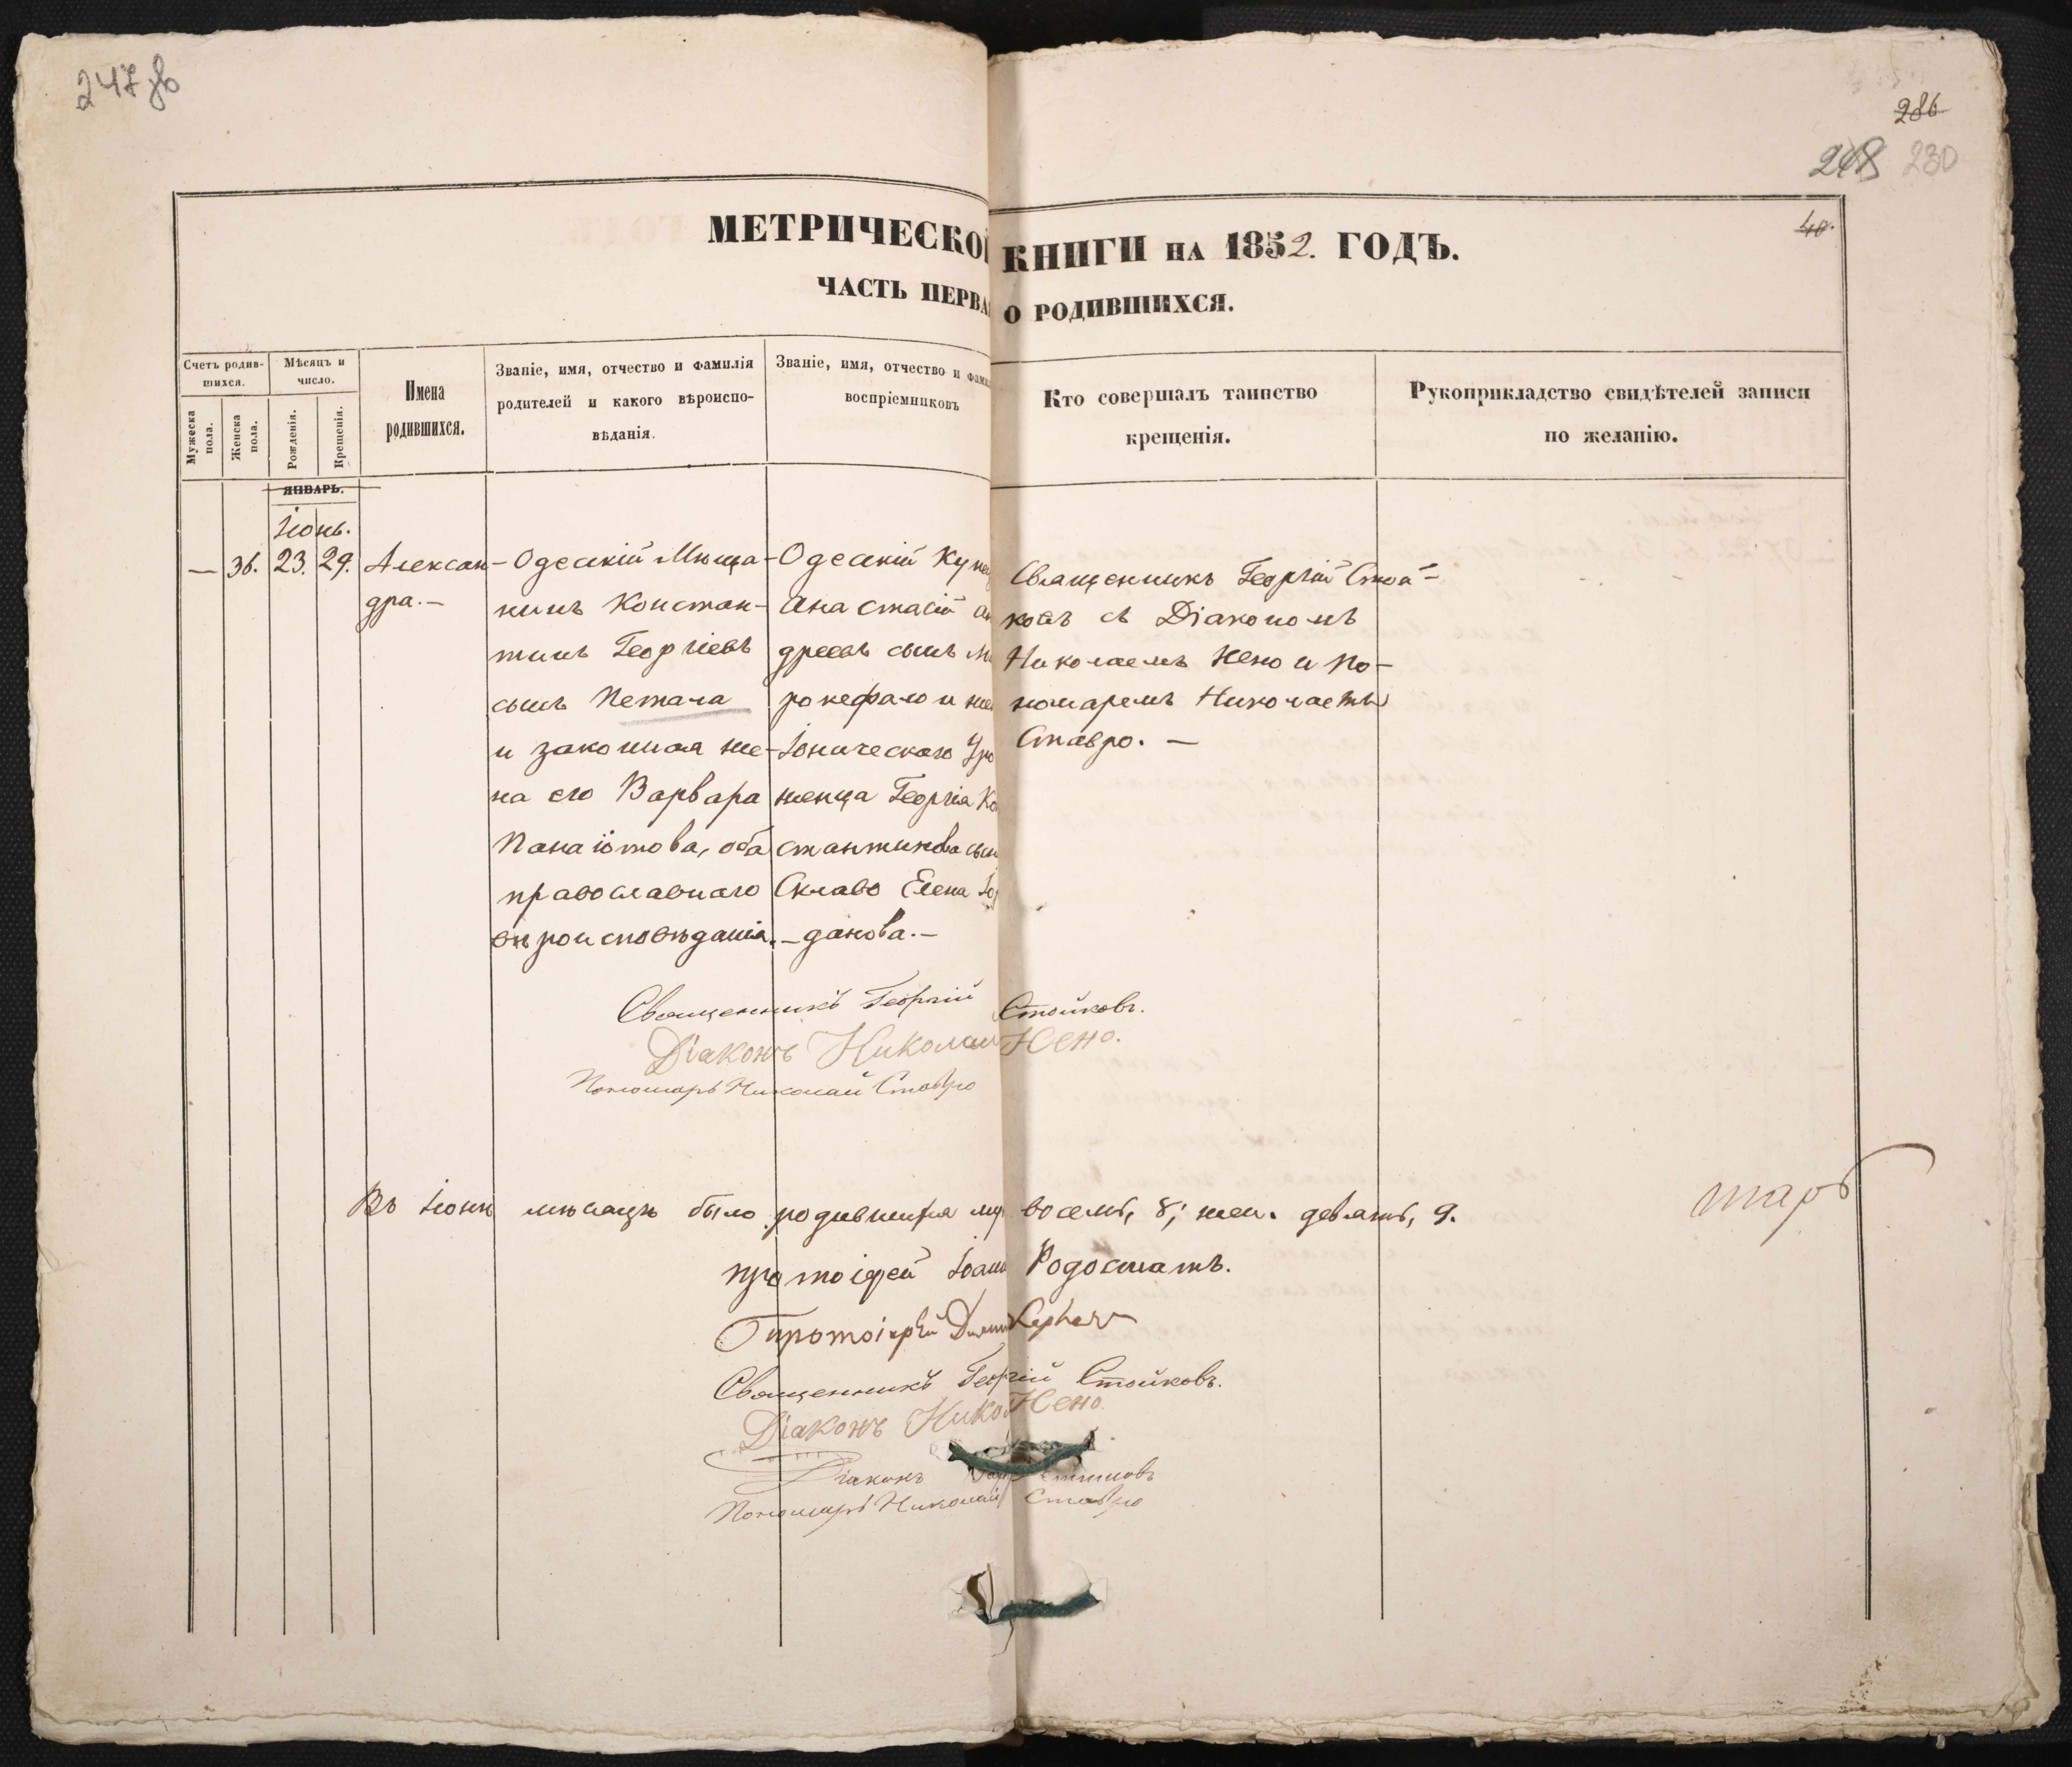 247 об
286
248 230
40.
МЕТРИЧЕСКОЙ КНИГИ НА 1852. ГОДЪ.
ЧАСТЬ ПЕРВА О РОДИВШИХСЯ.
Счетъ родив-
шихся.
Мужеска
пола.
Женска
пола.
Мѣсяцъ и
число.
Рожденія.
Крещенія.
Имена
родившихся.
Званіе, имя, отчество и фамилія
родителей и какого вѣроиспо-
вѣданія.
Званіе, имя, отчество и фами
воспріемниковъ
Кто совершалъ таинство
крещенія.
Рукоприкладство свидѣтелей записи
по желанію.
ЯНВАРЬ.
Іюнь.
— 36. 23. 29.
Алексан-
дра.—
Одесскій Мѣща-
нинъ Констан-
тинъ Георгіевъ
сынъ Петала
и законная же-
на его Варвара
Панаіотова, оба
православнаго
вѣроисповѣданія.
Одесскій Купец
Анастасій Ан
дреевъ сынъ Ма
рокефало и жен
Іоническаго Уро
женца Георгія Ко
стантинова сын
Склаво Елена Іо
данова.—
Священникъ Георгій Стой-
ковъ съ Діакономъ
Николаемъ Нено и по-
номаремъ Николаемъ
Ставро.—
Священникъ Георгій Стойковъ.
Діаконъ Николай Нено.
Пономарь Николай Ставро
Въ Іюнѣ мѣсяцѣ было родившихся му восемь, 8; жен. девять, 9.
Протоіерей Іоанн Родостатъ.
Протоіерей
Священникъ Георгій Стойковъ.
Діаконъ Нико Нено.
Діаконъ
Пономарь Николай Ставро